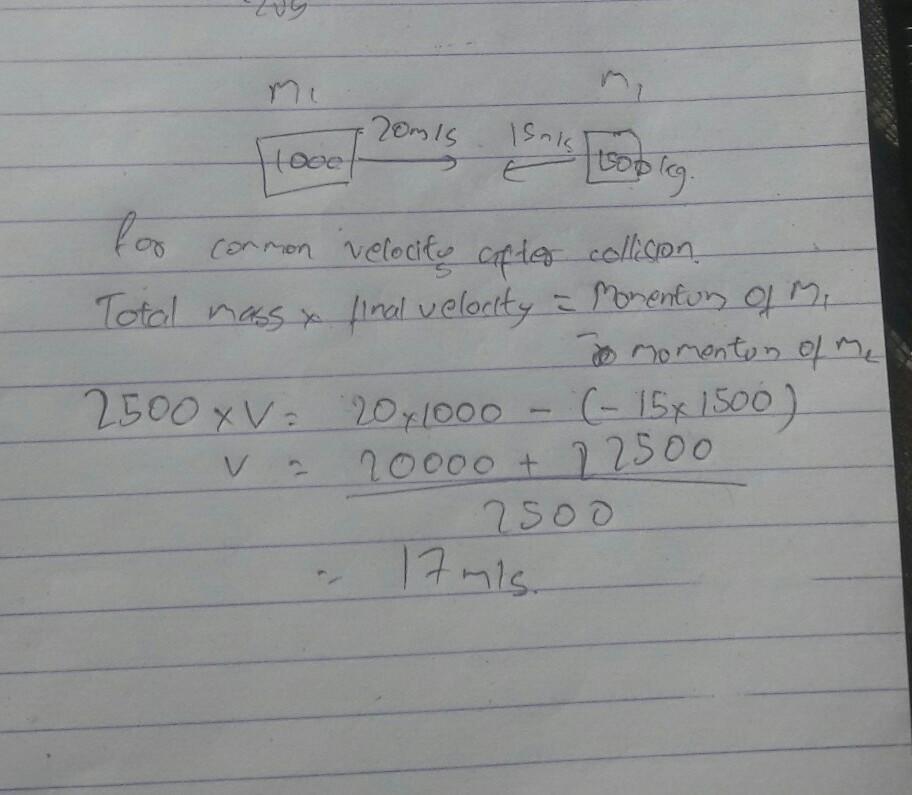 m1 m1
1000 20m/s 15m/s 1500 kg.
for common velocity after collision.
Total mass x final velocity = Momentum of m1
momentum of m2
2500 x V = 20x1000 - (-15x1500)
v = 20000 + 22500
2500
= 17 m/s.